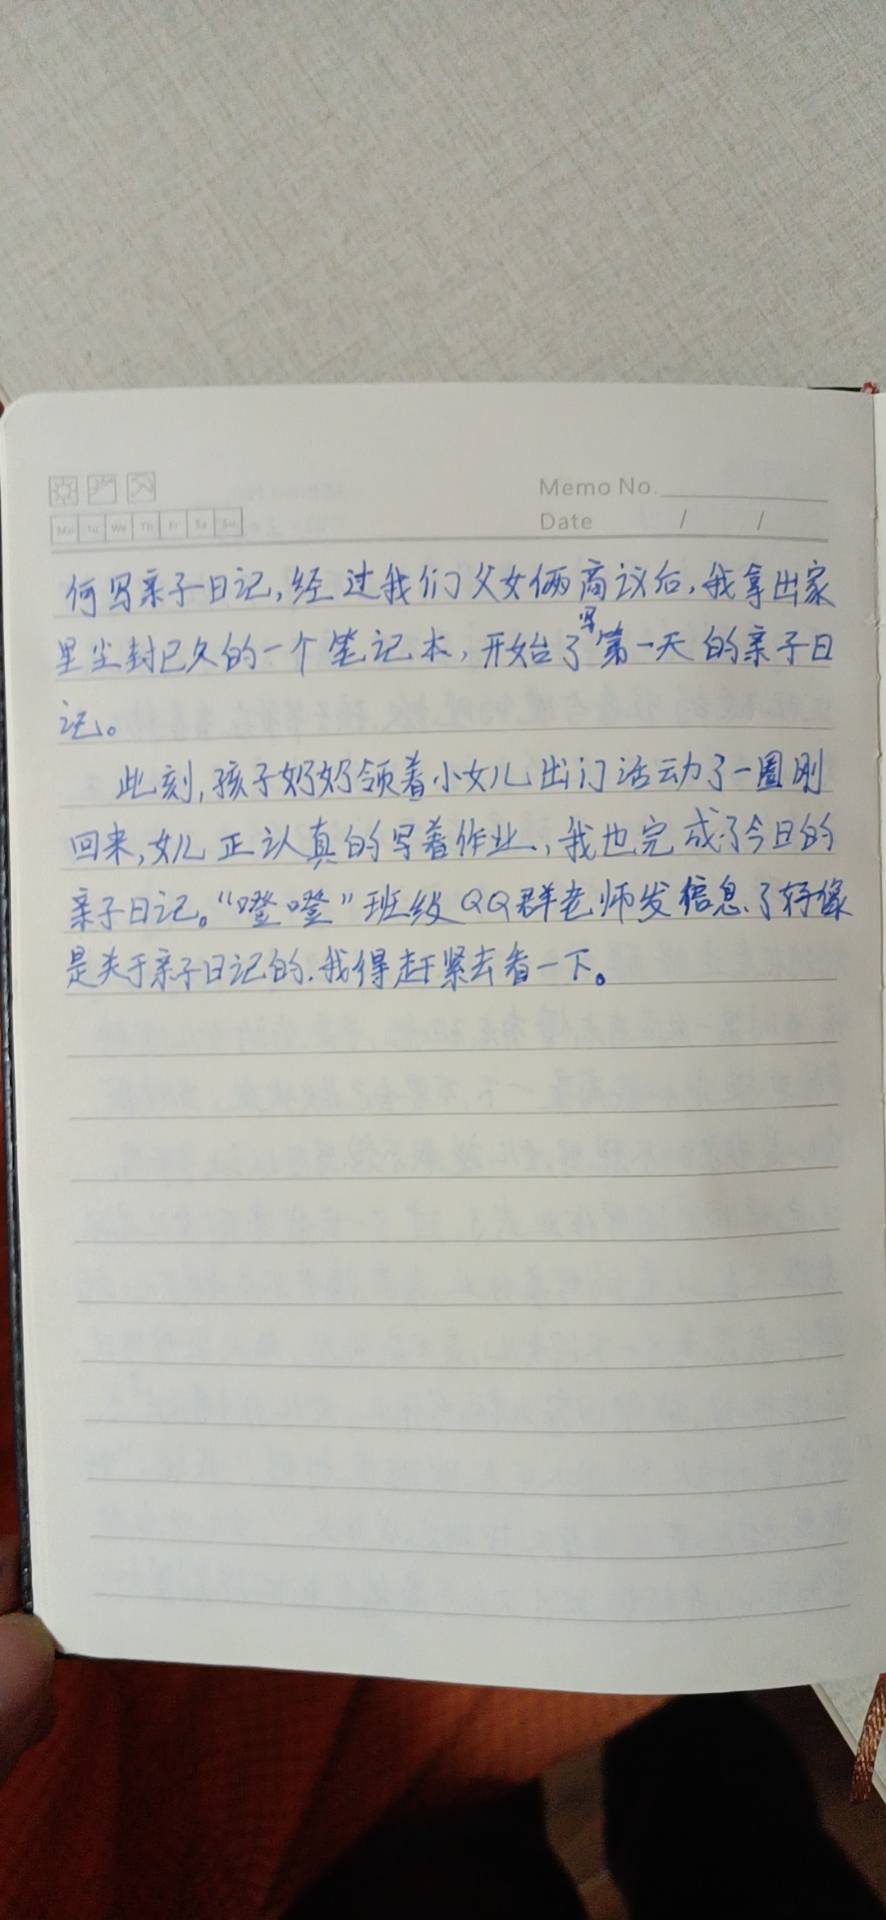 Memo No.
Mo Tu We Th Fr Sa Su
Date / /
何写亲子日记,经过我们父女俩商议后,我拿出家
里尘封已久的一个笔记本,开始了写第一天的亲子日
记。
此刻,孩子奶奶领着小女儿出门活动了一圈刚
回来,女儿正认真的写着作业,我也完成了今日的
亲子日记。“噔噔”班级QQ群老师发信息了好像
是关于亲子日记的.我得赶紧去看一下。